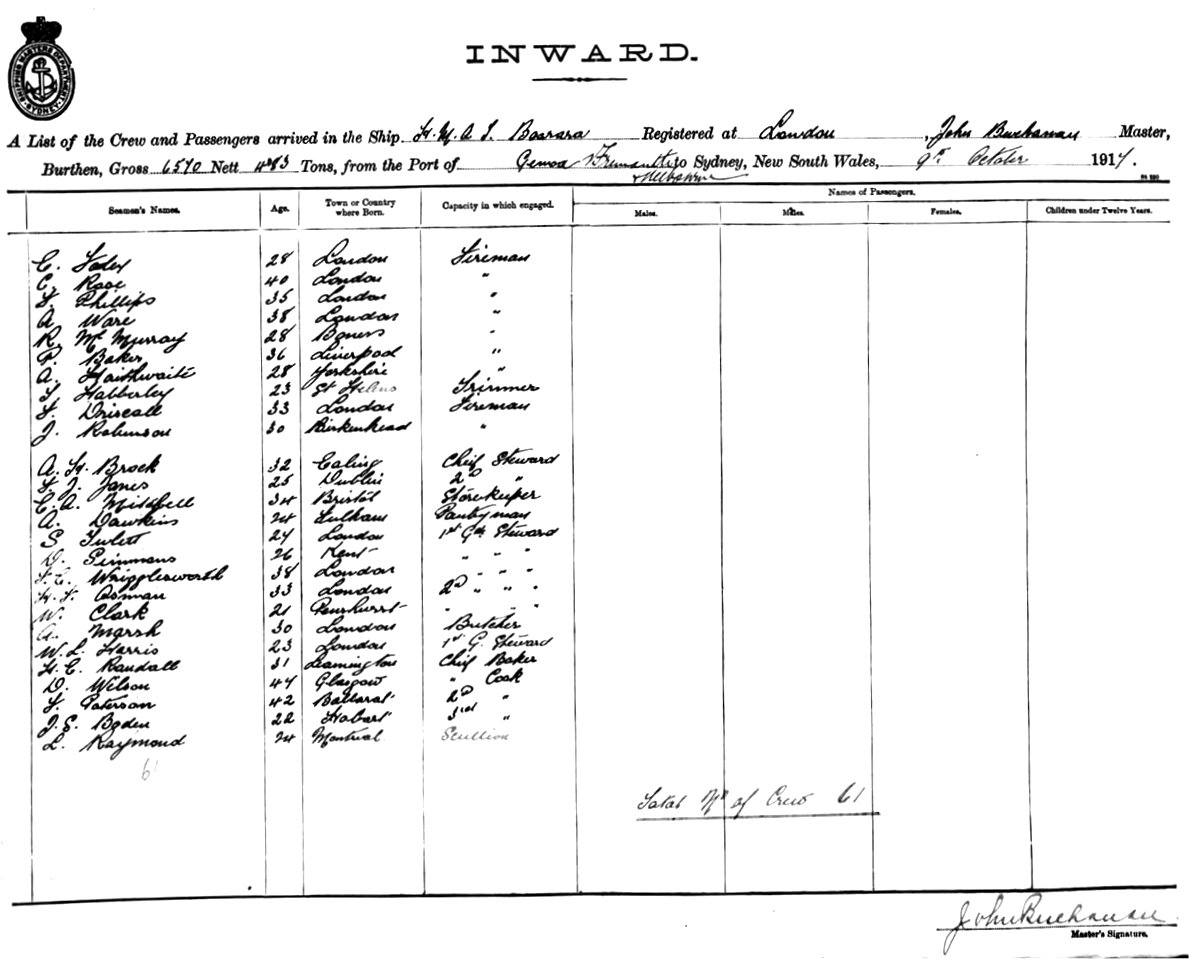 SHIPPING MASTERS DEPARTMENT SYDNEY
INWARD.
A List of the Crew and Passengers arrived in the Ship H.M.A.T. Boorara Registered at London, John Buchanan Master,
Burthen, Gross 6570 Nett Tons, from the Port of Genoa Fremantle to Sydney, New South Wales, 9th October 1917.
Melbourne
Seamen's Names. Age. Town or Country where Born. Capacity in which engaged. Names of Passengers.
Males. Males. Females. Children under Twelve Years.
C. 28 London Fireman
C. 40 London "
F. Phillips 35 London "
A. Ware 38 London "
R. McMurray 28 "
P. Baker 36 Liverpool "
A. Haithwaite 28 Yorkshire "
T. Habberley 23 St Helens Trimmer
F. Driscall 33 London Fireman
J. Robinson 30 Birkenhead "
A. H. Brock 32 Ealing Chief Steward
F. J. Janes 25 Dublin 2nd "
C. A. Mitchell 34 Bristol Storekeeper
A. Dawkins 24 Fulham Pantryman
S. 24 London 1st Gen Steward
D. Simmans 26 Kent " " "
F. C. Wrigglesworth 38 London " " "
H. F. Osman 33 London 2nd " " "
W. Clark 21 Penshurst " " "
A. Marsh 30 London Butcher
W. L. Harris 23 London 1st G. Steward
H. E. Randall 31 Leamington Chief Baker
D. Wilson 47 Glasgow " Cook
F. Paterson 42 Ballarat 2nd "
J. S. Boden 22 Hobart 3rd "
L. Raymond 24 Montreal Scullion
61
Total No of Crew 61
John Buchanan
Master's Signature.